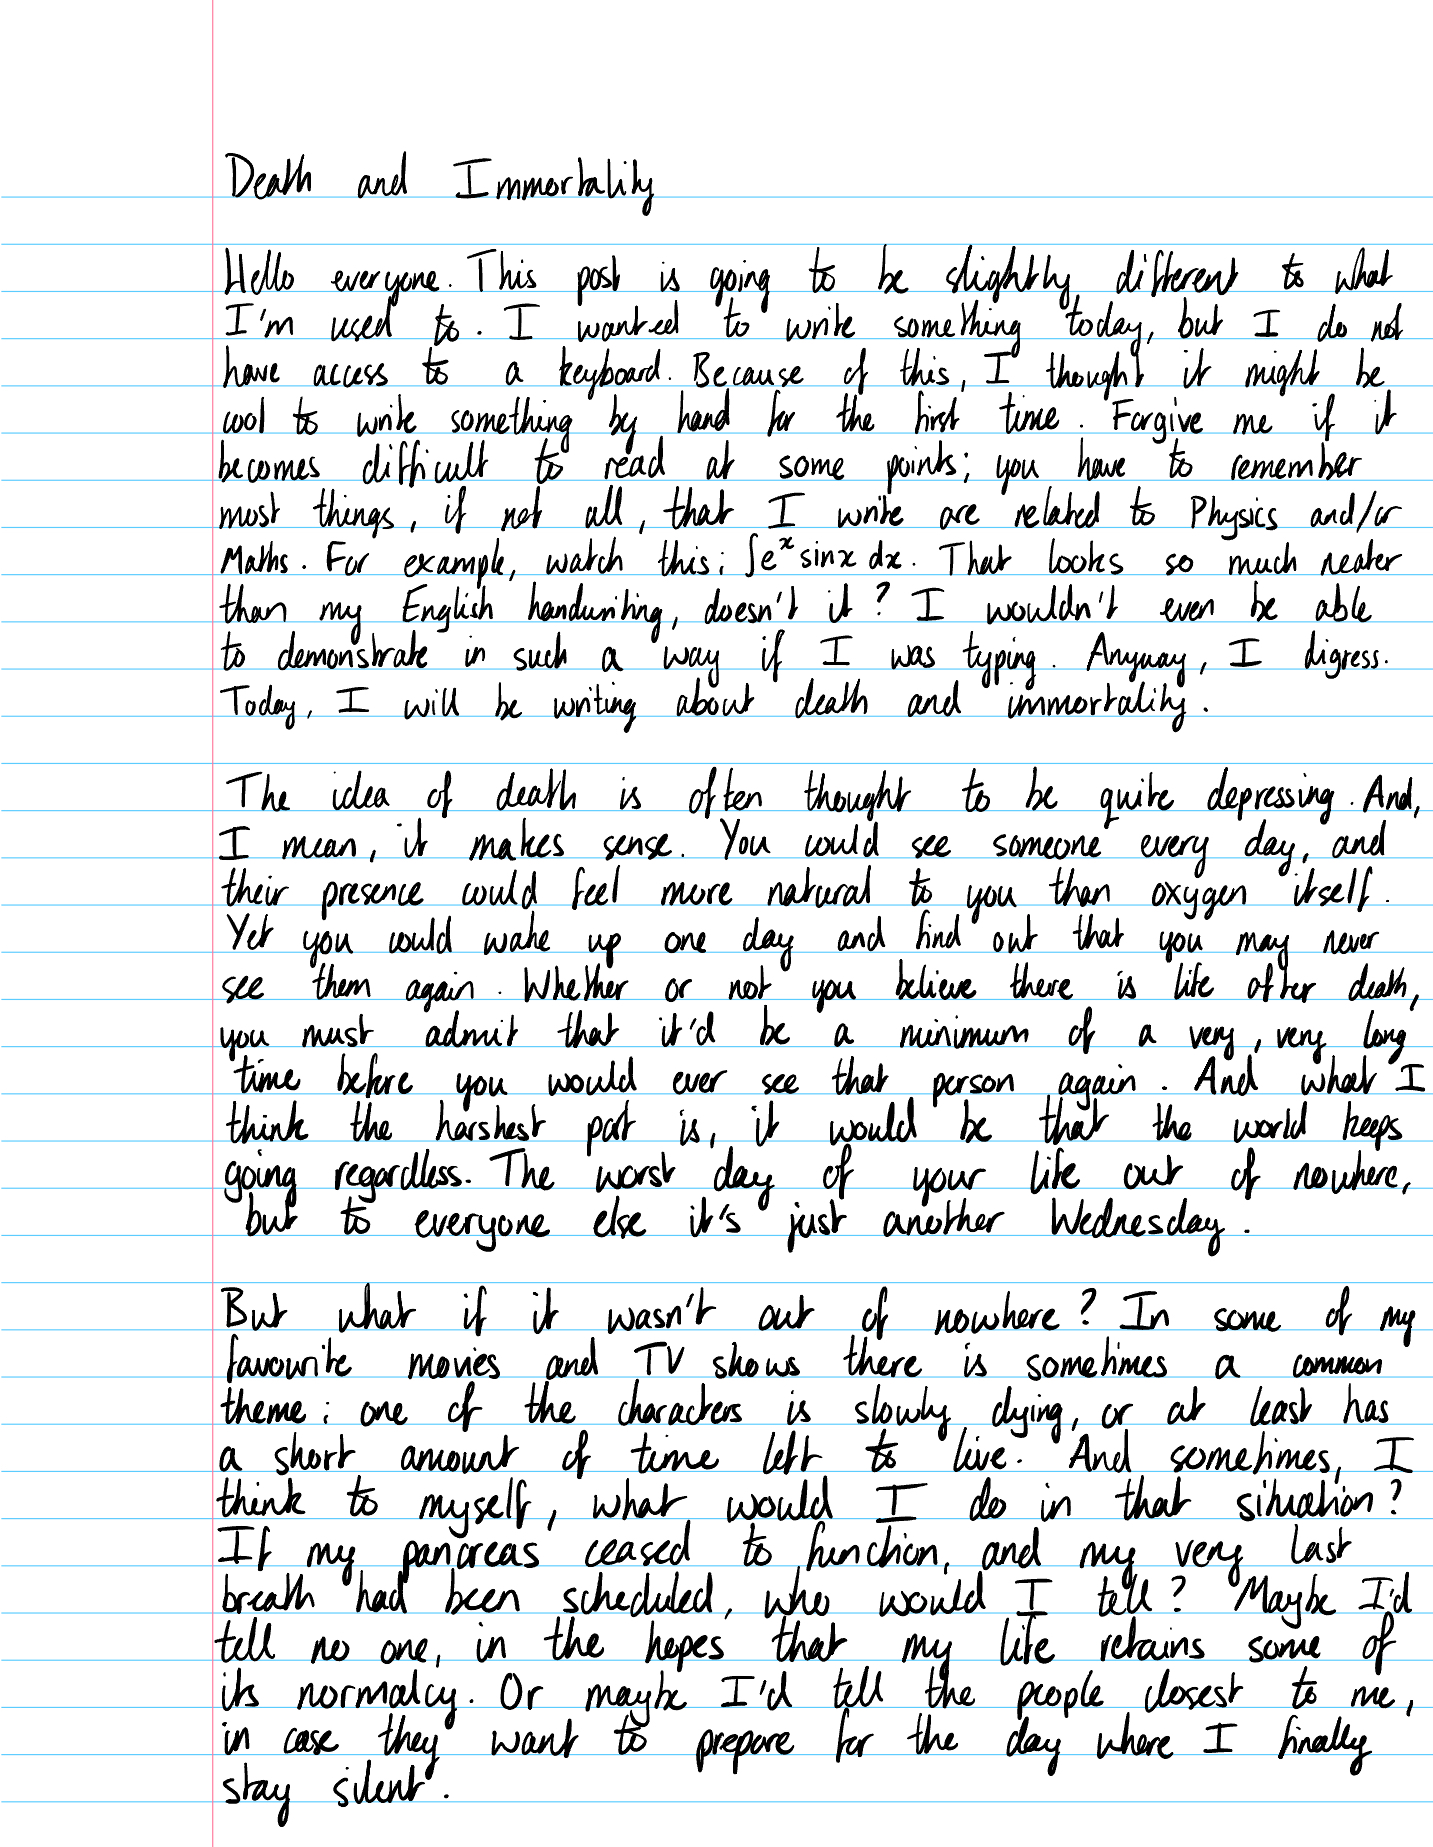 Death and Immortality
Hello everyone. This post is going to be slightly different to what
I'm used to. I wanted to write something today, but I do not
have access to a keyboard. Because of this, I thought it might be
cool to write something by hand for the first time. Forgive me if it
becomes difficult to read at some points; you have to remember
most things, if not all, that I write are related to Physics and/or
Maths. For example, watch this: ∫eˣ sinx dx. That looks so much neater
than my English handwriting, doesn't it? I wouldn't even be able
to demonstrate in such a way if I was typing. Anyway, I digress.
Today, I will be writing about death and immortality.
The idea of death is often thought to be quite depressing. And,
I mean, it makes sense. You could see someone every day, and
their presence could feel more natural to you than oxygen itself.
Yet you could wake up one day and find out that you may never
see them again. Whether or not you believe there is life after death,
you must admit that it'd be a minimum of a very, very long
time before you would ever see that person again. And what I
think the harshest part is, it would be that the world keeps
going regardless. The worst day of your life out of nowhere,
but to everyone else it's just another Wednesday.
But what if it wasn't out of nowhere? In some of my
favourite movies and TV shows there is sometimes a common
theme: one of the characters is slowly dying, or at least has
a short amount of time left to live. And sometimes, I
think to myself, what would I do in that situation?
If my pancreas ceased to function, and my very last
breath had been scheduled, who would I tell? Maybe I'd
tell no one, in the hopes that my life retains some of
its normalcy. Or maybe I'd tell the people closest to me,
in case they want to prepare for the day where I finally
stay silent.